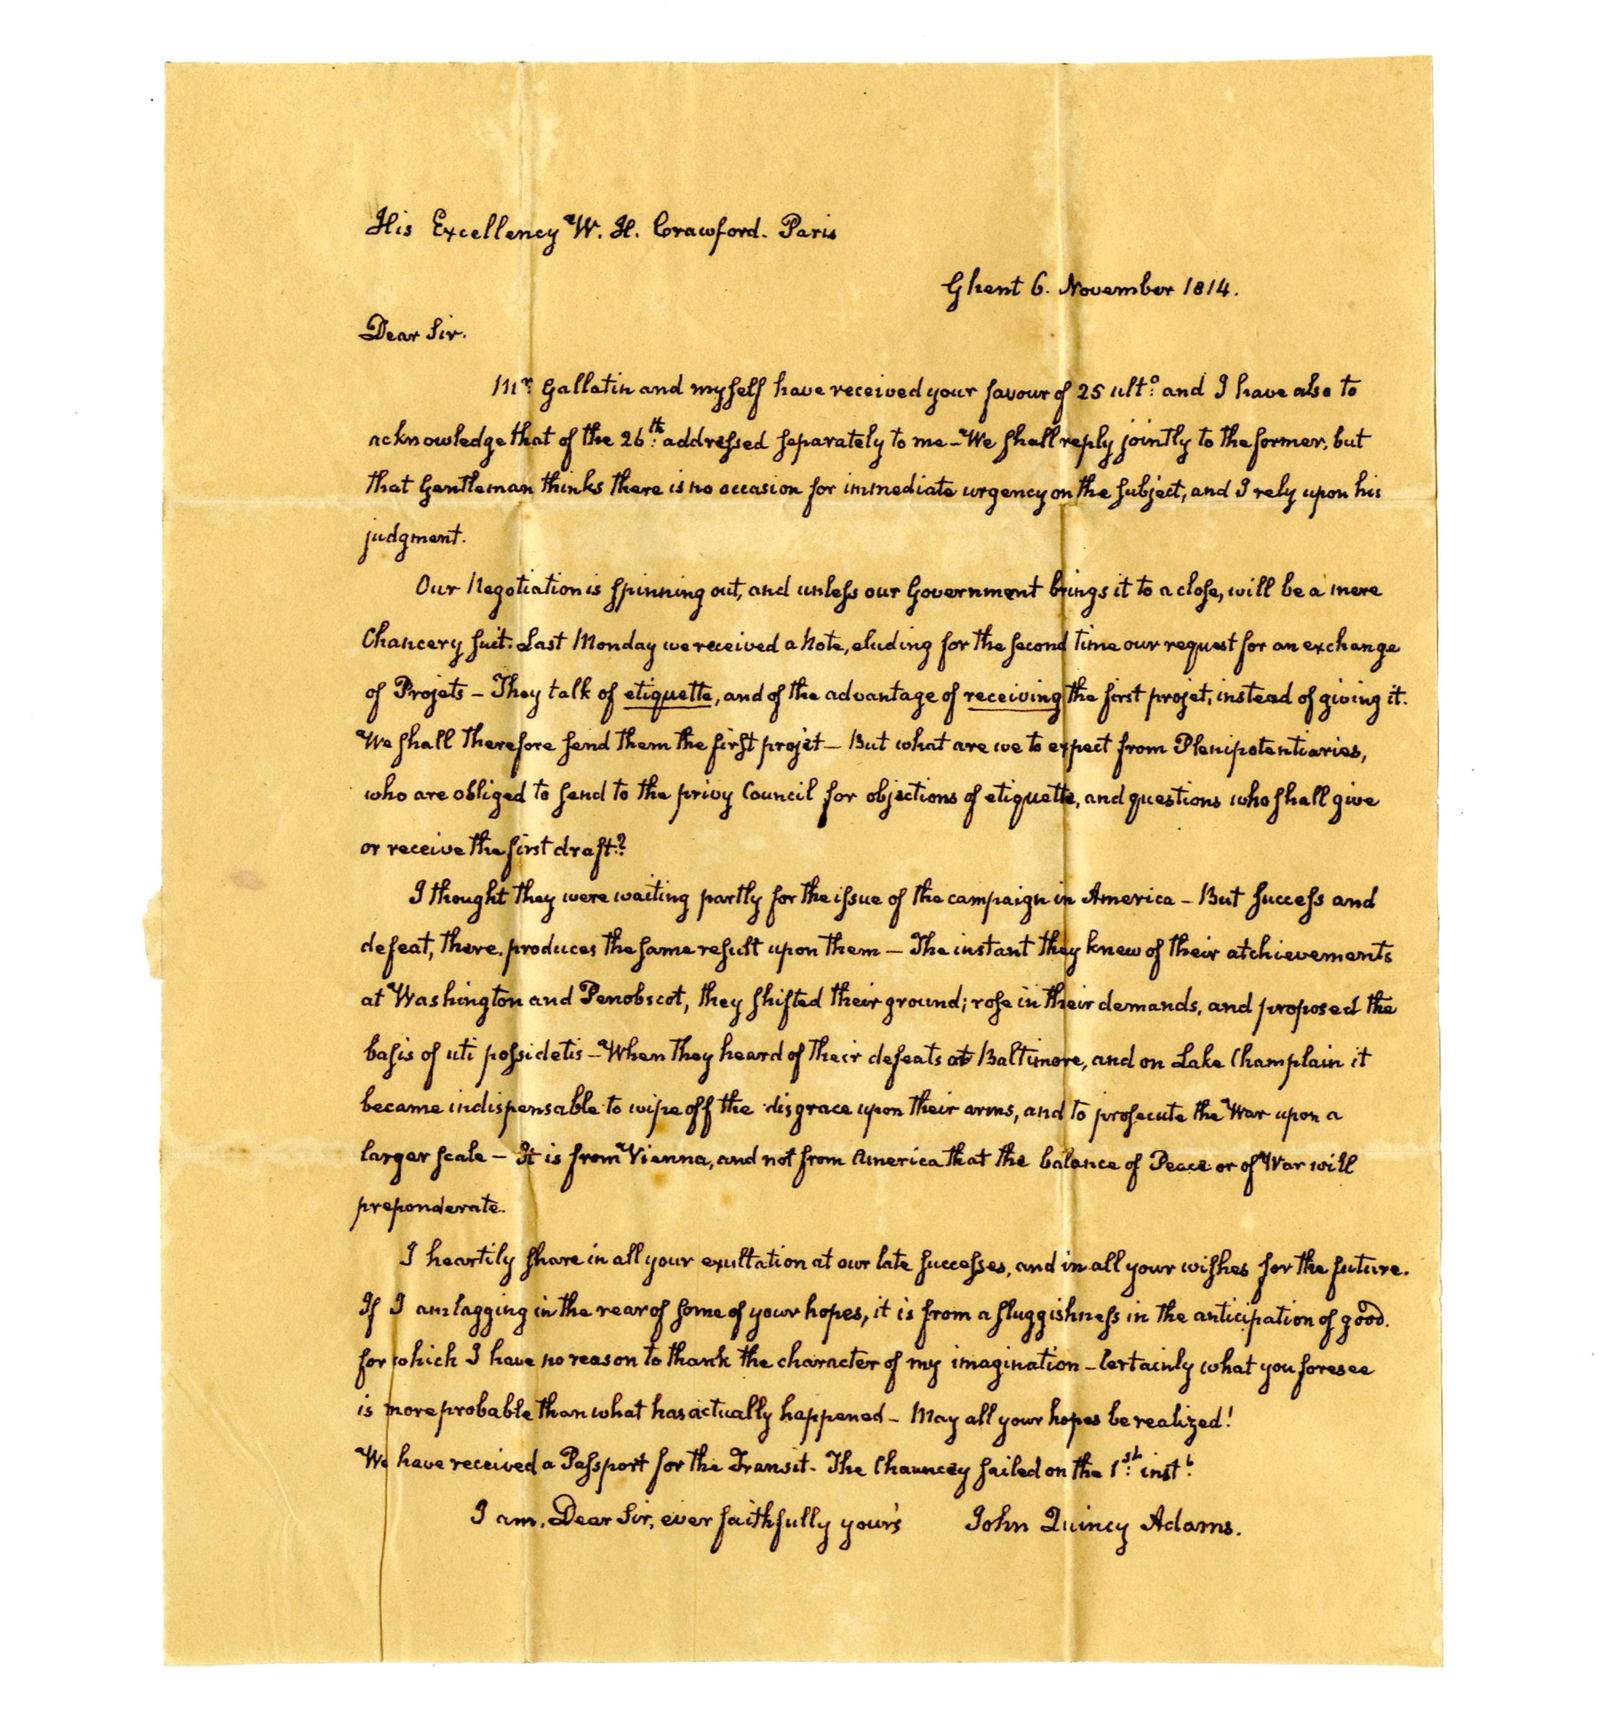 His Excellency W. H. Crawford. Paris
Ghent 6. November 1814.
Dear Sir.
Mr. Gallatin and myself have received your favour of 25 ulto. and I have also to
acknowledge that of the 26th. addressed separately to me – We shall reply jointly to the former, but
that Gentleman thinks there is no occasion for immediate urgency on the subject, and I rely upon his
judgment.
Our Negotiation is spinning out, and unless our Government brings it to a close, will be a mere
Chancery suit. Last Monday we received a Note, eluding for the second time our request for an exchange
of Projets – They talk of etiquette, and of the advantage of receiving the first projet, instead of giving it.
We shall therefore send them the first projet – But what are we to expect from Plenipotentiaries,
who are obliged to send to the privy Council for objections of etiquette, and questions who shall give
or receive the first draft?
I thought they were waiting partly for the issue of the campaign in America – But success and
defeat, there, produces the same result upon them – The instant they knew of their atchievements
at Washington and Penobscot, they shifted their ground; rose in their demands, and proposed the
basis of uti possidetis – When they heard of their defeats at Baltimore, and on Lake Champlain it
became indispensable to wipe off the disgrace upon their arms, and to prosecute the War upon a
larger scale – It is from Vienna, and not from America that the balance of Peace or of War will
preponderate.
I heartily share in all your exultation at our late successes, and in all your wishes for the future.
If I am lagging in the rear of some of your hopes, it is from a sluggishness in the anticipation of good.
for which I have no reason to thank the character of my imagination – Certainly what you foresee
is more probable than what has actually happened – May all your hopes be realized!
We have received a Passport for the Transit. The Chauncey sailed on the 1st. instt.
I am, Dear Sir, ever faithfully your's John Quincy Adams.